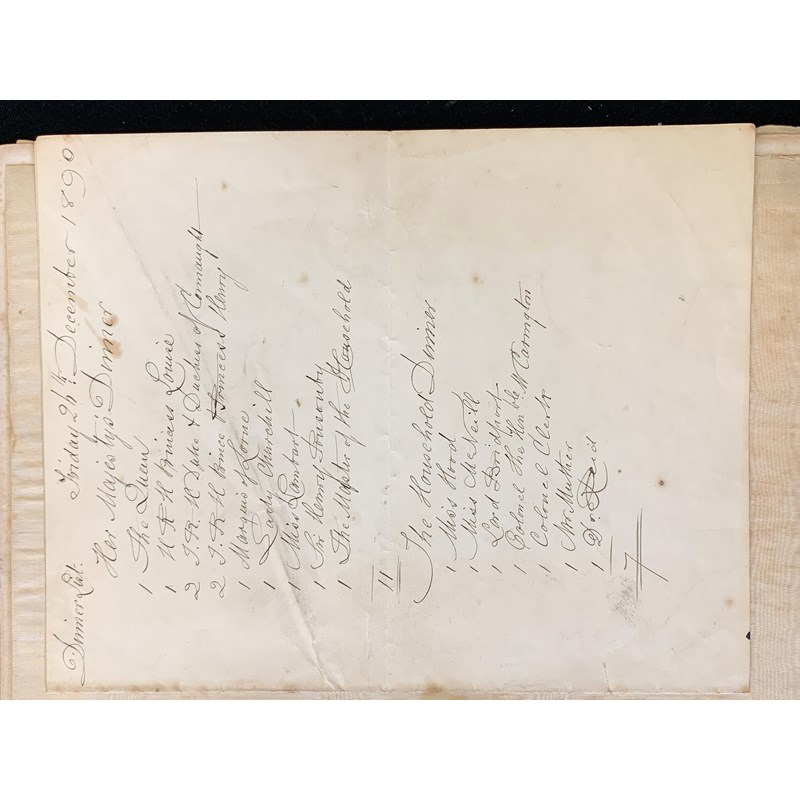 Dinner List. Friday 26th. December 1890
Her Majesty's Dinner
1 The Queen
1 H R H Princess Louise
2 T. R. H Duke & Duchess of Connaught
2 T. R. H Prince & Princess Henry
1 Marquis of Lorne
1 Lady Churchill
1 Miss Lambart
1 Sir Henry Ponsonby
1 The Master of the Household
11
The Household Dinner
1 Miss Hood
1 Miss McNeill
1 Lord Bridport
1 Colonel The Honble W Carington
1 Colonel Clerk
1 Mr Muther
1 Dr. Reid
7